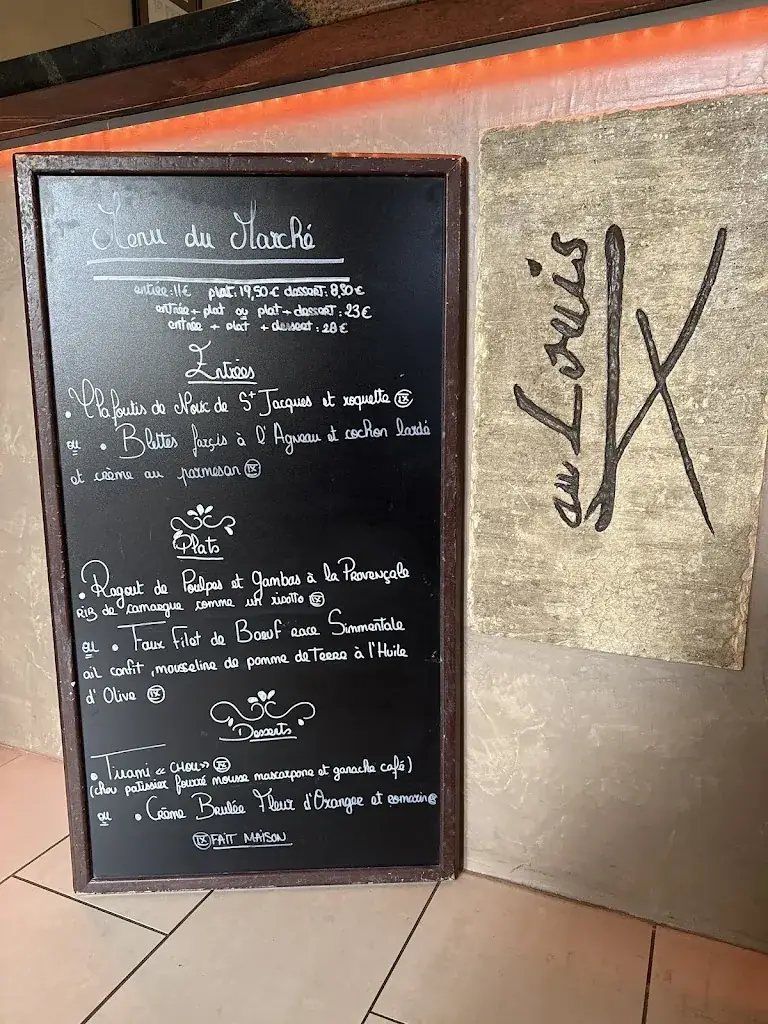 Menu du Marché
entrée : 11€ plat : 19,50€ dessert : 8,50€
entrée + plat ou plat + dessert : 23€
entrée + plat + dessert : 28€
Entrées
• Clafoutis de Noix de St Jacques et roquette IX
ou • Blettes farçis à l'Agneau et cochon lardé
et crème au parmesan IX
Plats
• Ragout de Poulpes et Gambas à la Provençale
RIZ de camargue comme un risotto IX
ou • Faux Filet de Boeuf race Simmentale
ail confit, mousseline de pomme de Terre à l'Huile
d'Olive IX
Desserts
• Tirami « CHOU » IX
(chou patissier fourré mousse mascarpone et ganache café)
ou • Crème Brulée Fleur d'Oranger et romarin
IX FAIT MAISON
au Louis IX